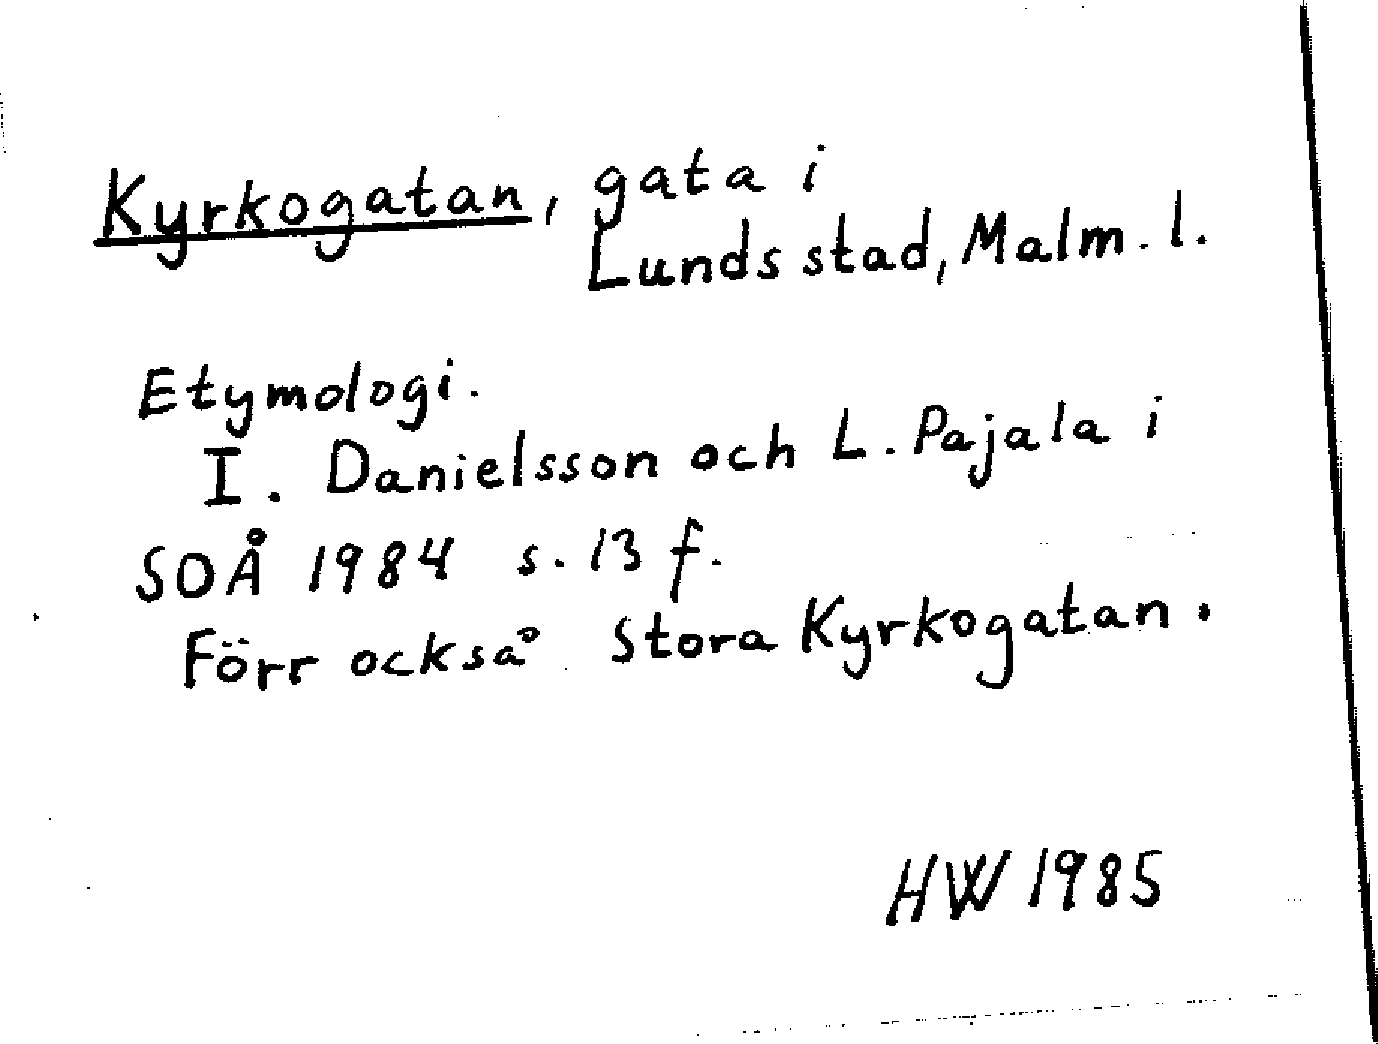 Kyrkogatan, gata i
Lunds stad, Malm. l.
Etymologi.
I. Danielsson och L. Pajala i
SOÅ 1984 s. 13 f.
Förr också Stora Kyrkogatan.
HW 1985